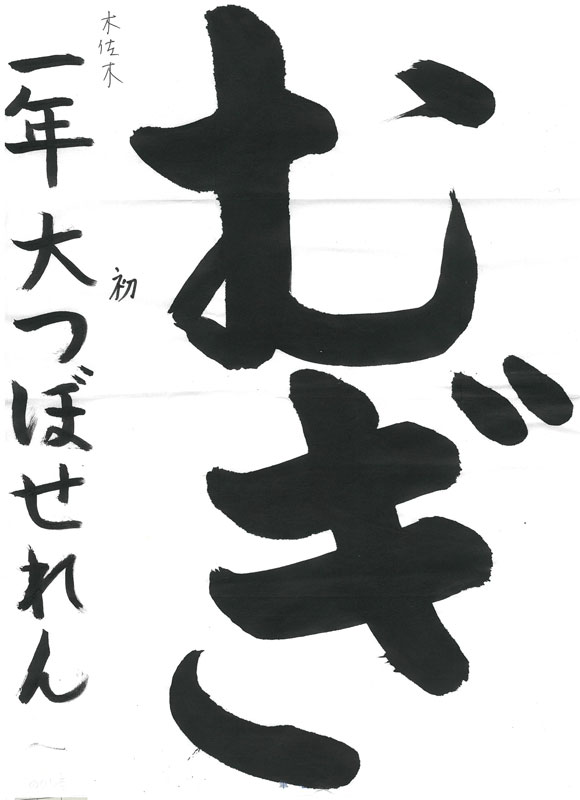 むぎ
初
木佐木
一年大つぼせれん